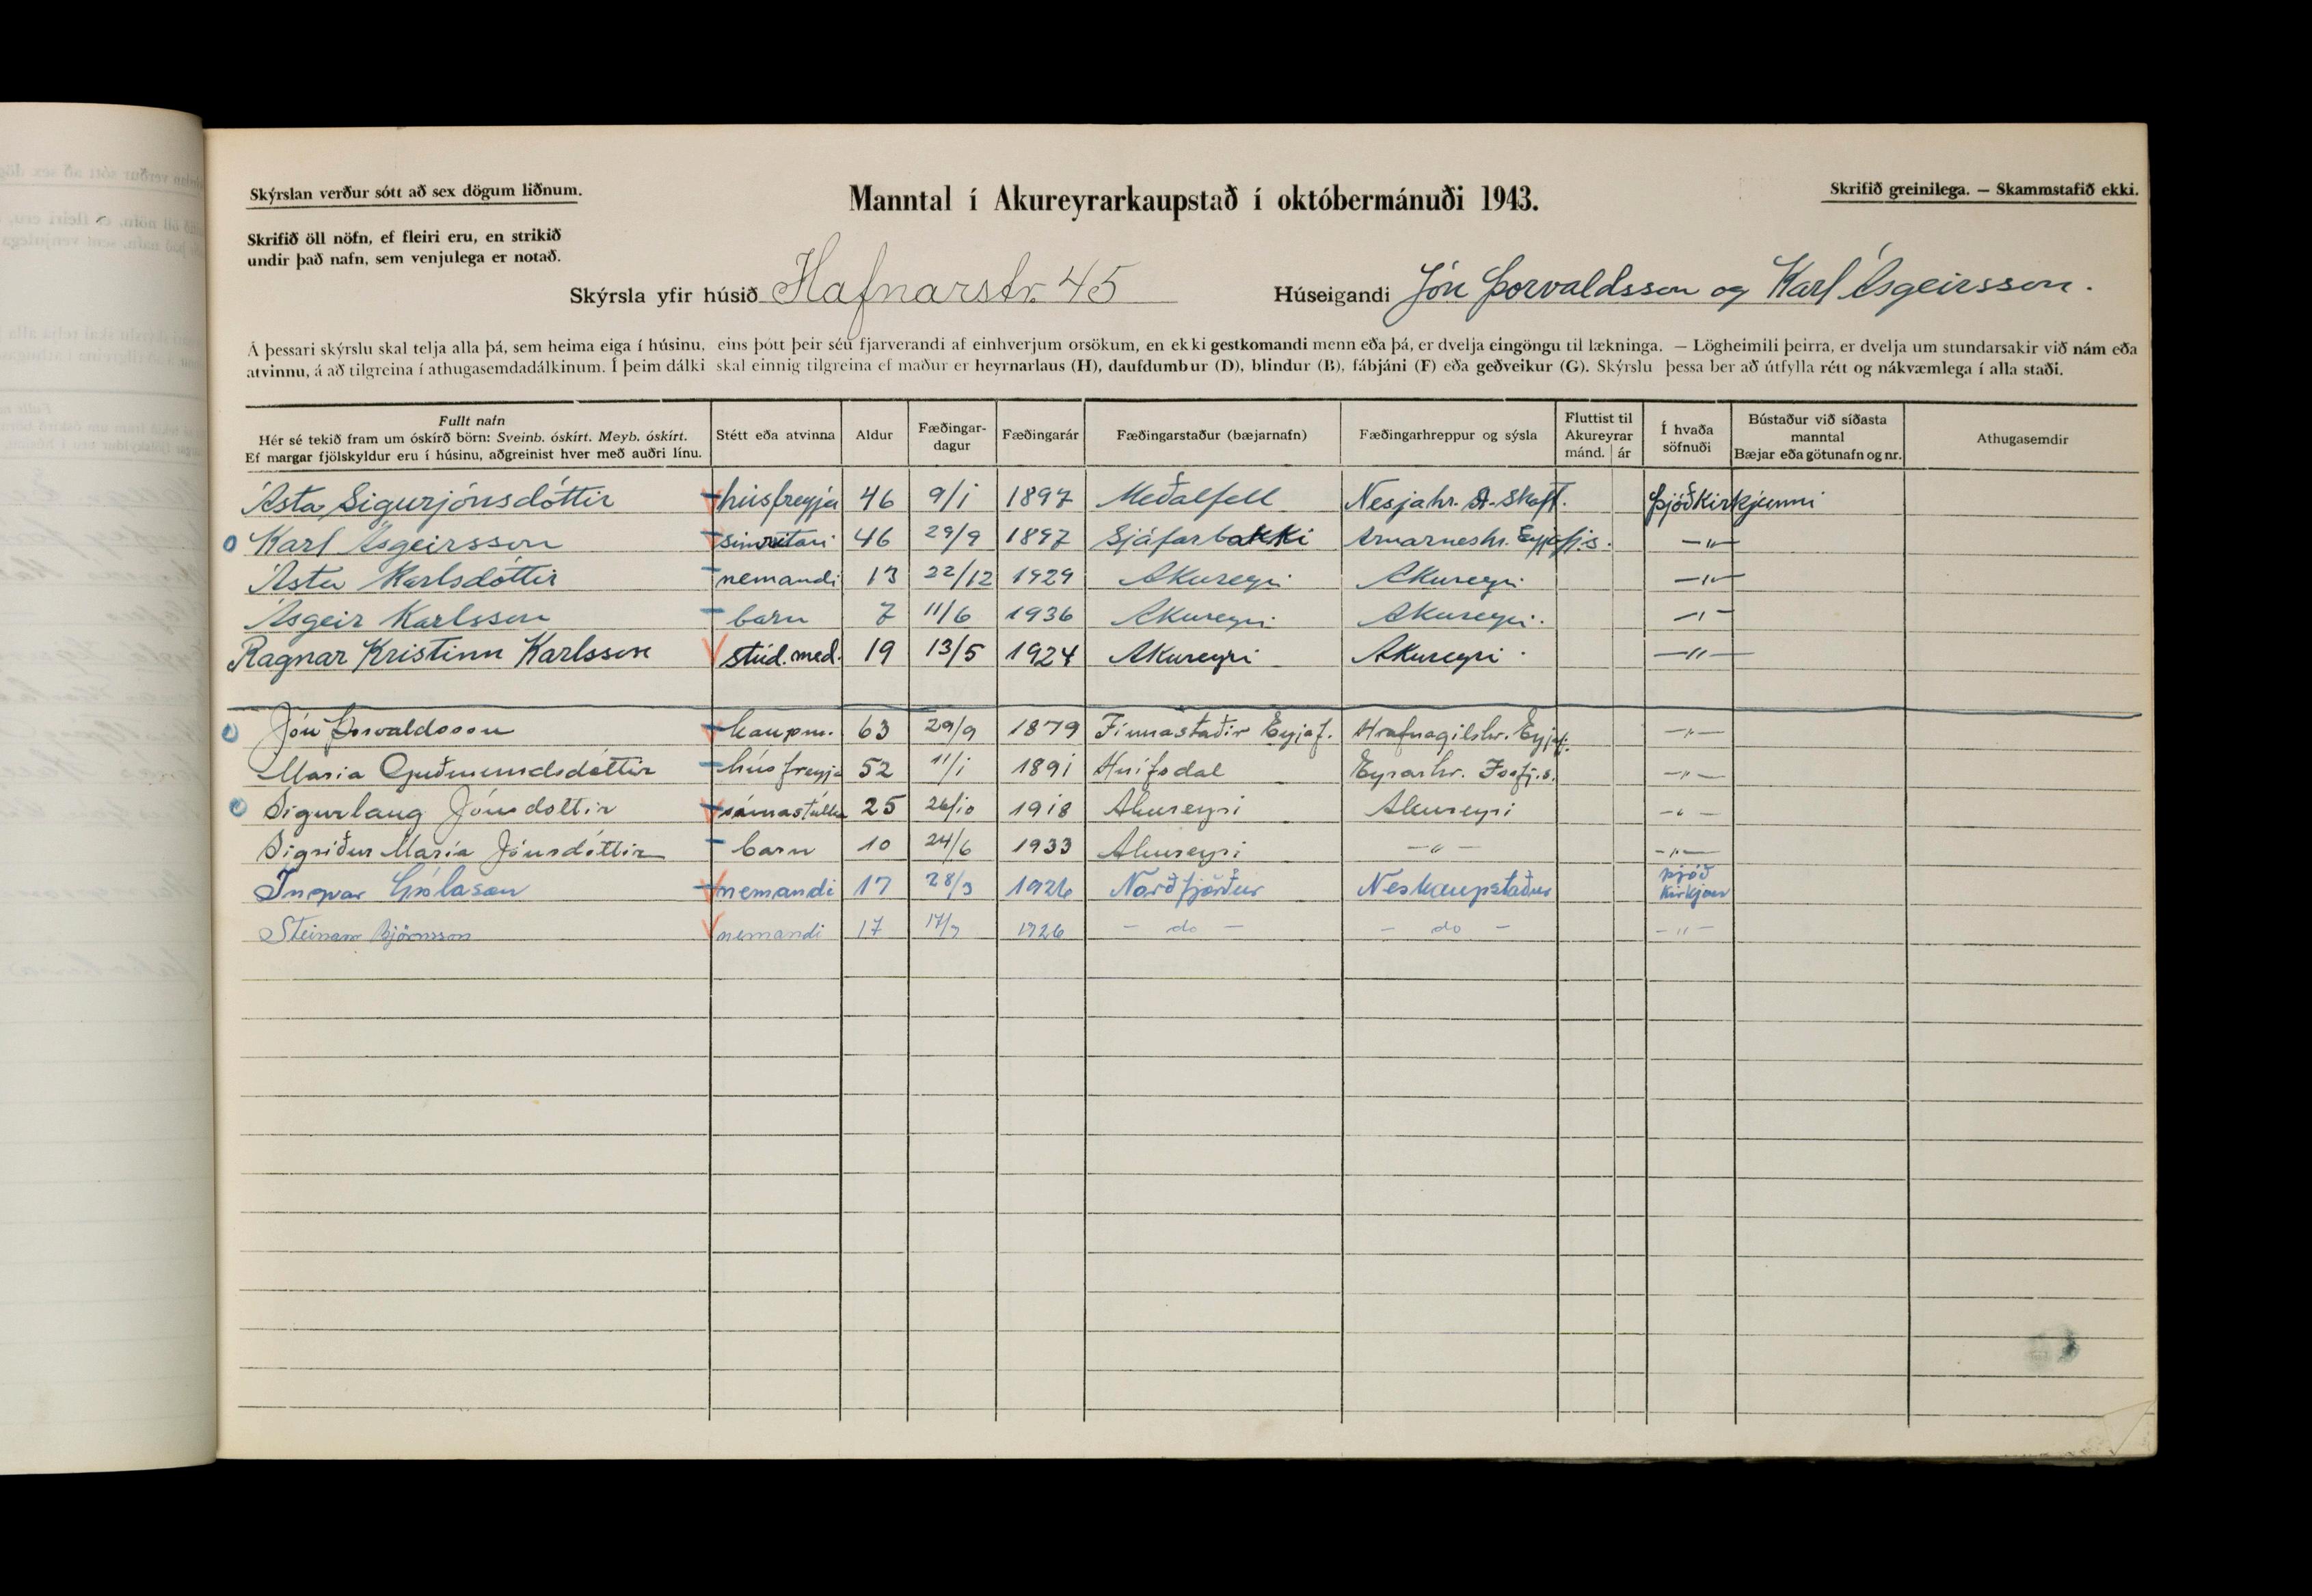 Skýrslan verður sótt að sex dögum liðnum.
Manntal í Akureyrarkaupstað í októbermánuði 1943.
Skrifið greinilega. — Skammstafið ekki.
Skrifið öll nöfn, ef fleiri eru, en strikið
undir það nafn, sem venjulega er notað.
Skýrsla yfir húsið Hafnarstr. 45 Húseigandi Jón Þorvaldsson og Karl Ásgeirsson.
Á þessari skýrslu skal telja alla þá, sem heima eiga í húsinu, eins þótt þeir séu fjarverandi af einhverjum orsökum, en ekki gestkomandi menn eða þá, er dvelja eingöngu til lækninga. — Lögheimili þeirra, er dvelja um stundarsakir við nám eða
atvinnu, á að tilgreina í athugasemdadálkinum. Í þeim dálki skal einnig tilgreina ef maður er heyrnarlaus (H), daufdumbur (D), blindur (B), fábjáni (F) eða geðveikur (G). Skýrslu þessa ber að útfylla rétt og nákvæmlega í alla staði.
Fullt nafn
Hér sé tekið fram um óskírð börn: Sveinb. óskírt. Meyb. óskírt.
Ef margar fjölskyldur eru í húsinu, aðgreinist hver með auðri línu.
Stétt eða atvinna
Aldur
Fæðingar-
dagur
Fæðingarár
Fæðingarstaður (bæjarnafn)
Fæðingarhreppur og sýsla
Fluttist til
Akureyrar
mánd. ár
Í hvaða
söfnuði
Bústaður við síðasta
manntal
Bæjar eða götunafn og nr.
Athugasemdir
Ásta Sigurjónsdóttir húsfreyja 46 9/1 1897 Meðalfell Nesjahr. A-Skaft. Þjóðkirkjunni
Karl Ásgeirsson símritari 46 29/9 1897 Sjáfarbakki Arnarneshr. Eyjafj.s. —"—
Ásta Karlsdóttir nemandi 13 22/12 1929 Akureyri Akureyri —"—
Ásgeir Karlsson barn 7 11/6 1936 Akureyri Akureyri. —"—
Ragnar Kristinn Karlsson stúd. med. 19 13/5 1924 Akureyri Akureyri —"—
Jón Þorvaldsson kaupm. 63 29/9 1879 Finnastaðir Eyjaf. Hrafnagilshr. Eyjaf. —"—
María Guðmundsdóttir húsfreyja 52 11/1 1891 Hnífsdal Eyrarhr. Ísafj.s. —"—
Sigurlaug Jónsdóttir símastúlka 25 26/10 1918 Akureyri Akureyri —"—
Sigríður María Jónsdóttir barn 10 24/6 1933 Akureyri —"— —"—
Ingvar Gíslason nemandi 17 28/3 1926 Norðfjörður Neskaupstaður þjóð
kirkjan
Steinarr Björnsson nemandi 17 1926 — do — — do — —"—